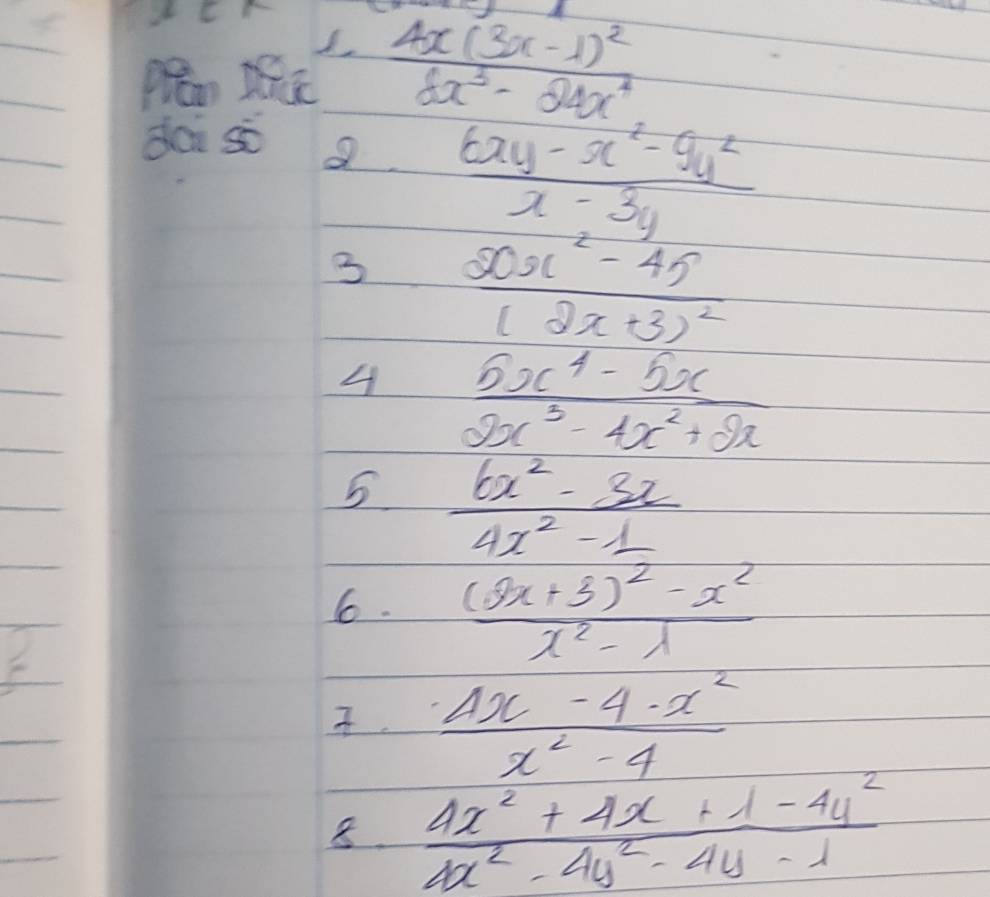 Phân thức
đại số
1. \frac{4x(3x-1)^2}{8x^3-24x^4}
2. \frac{6xy-x^2-9y^2}{x-3y}
3 \frac{20x^2-45}{(2x+3)^2}
4 \frac{5x^4-5x}{2x^3-4x^2+2x}
5. \frac{6x^2-3x}{4x^2-1}
6. \frac{(2x+3)^2-x^2}{x^2-1}
7. \frac{4x-4-x^2}{x^2-4}
8. \frac{4x^2+4x+1-4y^2}{4x^2-4y^2-4y-1}